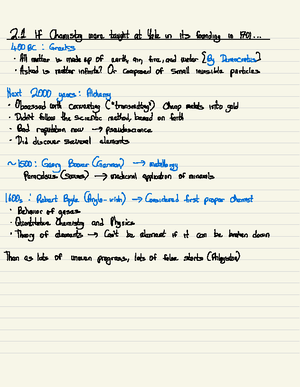 2.1 If Chemistry were taught at Yale in its founding in 1701...
400 BC : Greeks
• All matter is made up of earth, air, fire, and water {By Democratus}
• Asked is matter infinite? Or composed of small invisible particles
Next 2000 years : Alchemy
• Obsessed with converting ("transmuting") cheap metals into gold
• Didn't follow the scientific method, based on faith
• Bad reputation now → pseudoscience
• Did discover several elements
~1500 : Georg Bauer (German) → metallurgy
Paracelsus (Swiss) → medicinal application of minerals
1600s : Robert Boyle (Anglo-Irish) → Considered first proper chemist
• Behavior of gases
• Quantitative Chemistry and Physics
• Theory of elements → Can't be element if it can be broken down
Then as lots of uneven progress, lots of false starts (Phlogiston)